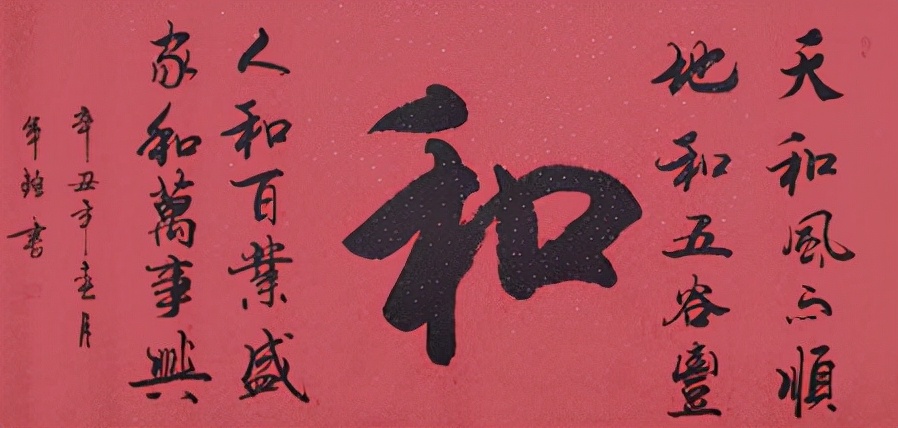 天和風雨順
地和五谷豐
和
人和百業盛
家和萬事興
辛丑年春月
書